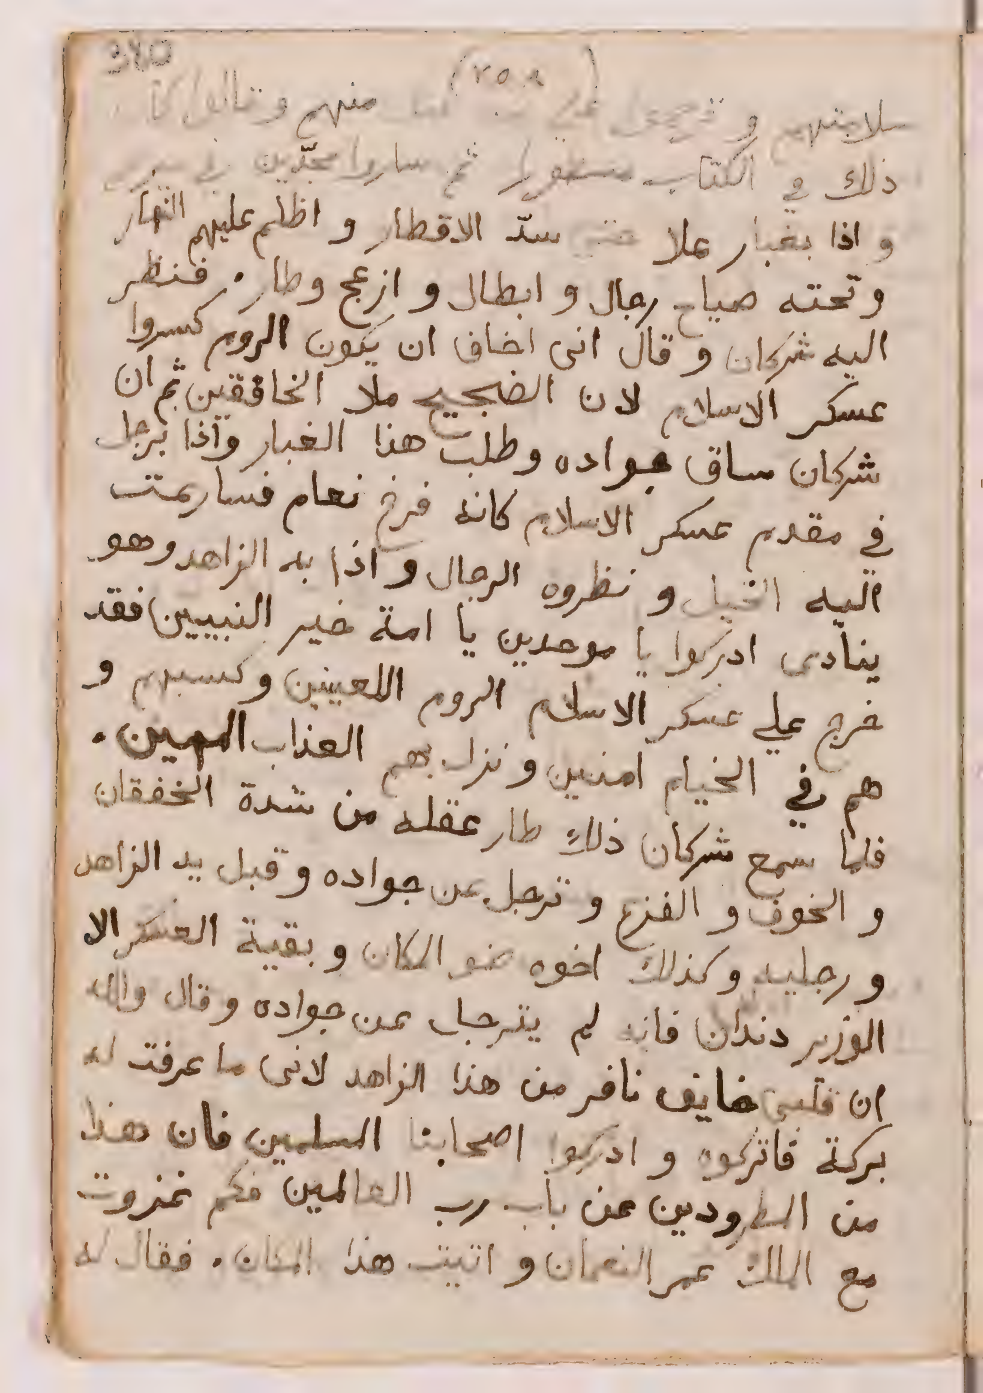 380
(٢٥٨)
سلامتهم و تعجبوا علي منهم وقالوا كان
ذلك في الكتاب مسطورا ثم ساروا مجدّين في سيرهم
و اذا بغبار علا حتي سدّ الاقطار و اظلم عليهم النهار
و تحته صياح رجال و ابطال و ازعج وطار. فنظر
اليه شركان و قال انى اخاف ان يكون الروم كسروا
عسكر الاسلام لان الضجيج ملا الخافقين ثم ان
شركان ساق جواده وطلب هذا الغبار واذا برجل
في مقدم عسكر الاسلام كانه فرخ نعام فسارعت
اليه الخيل و نظروه الرجال و اذا به الزاهد وهو
ينادى ادركوا يا موحدين يا امة خير النبيين فقد
خرج علي عسكر الاسلام الروم اللعينين وكسبهم و
هم في الخيام امنين و نزل بهم العذاب المهين.
فلما سمع شركان ذلك طار عقله من شدة الخفقان
و الخوف و الفزع و ترجل عن جواده و قبل يد الزاهد
و رجليه و كذلك اخوه ضو المكان و بقية العسكر الا
الوزير دندان فانه لم يترجل عن جواده و قال والله
ان قلبى خايف نافر من هذا الزاهد لانى ما عرفت له
بركة فاتركوه و ادركوا اصحابنا المسلمين فان هذا
من المطرودين عن باب رب العالمين فكم غزوت
مع الملك عمر النعمان و اتيت هذا المكان. فقال له